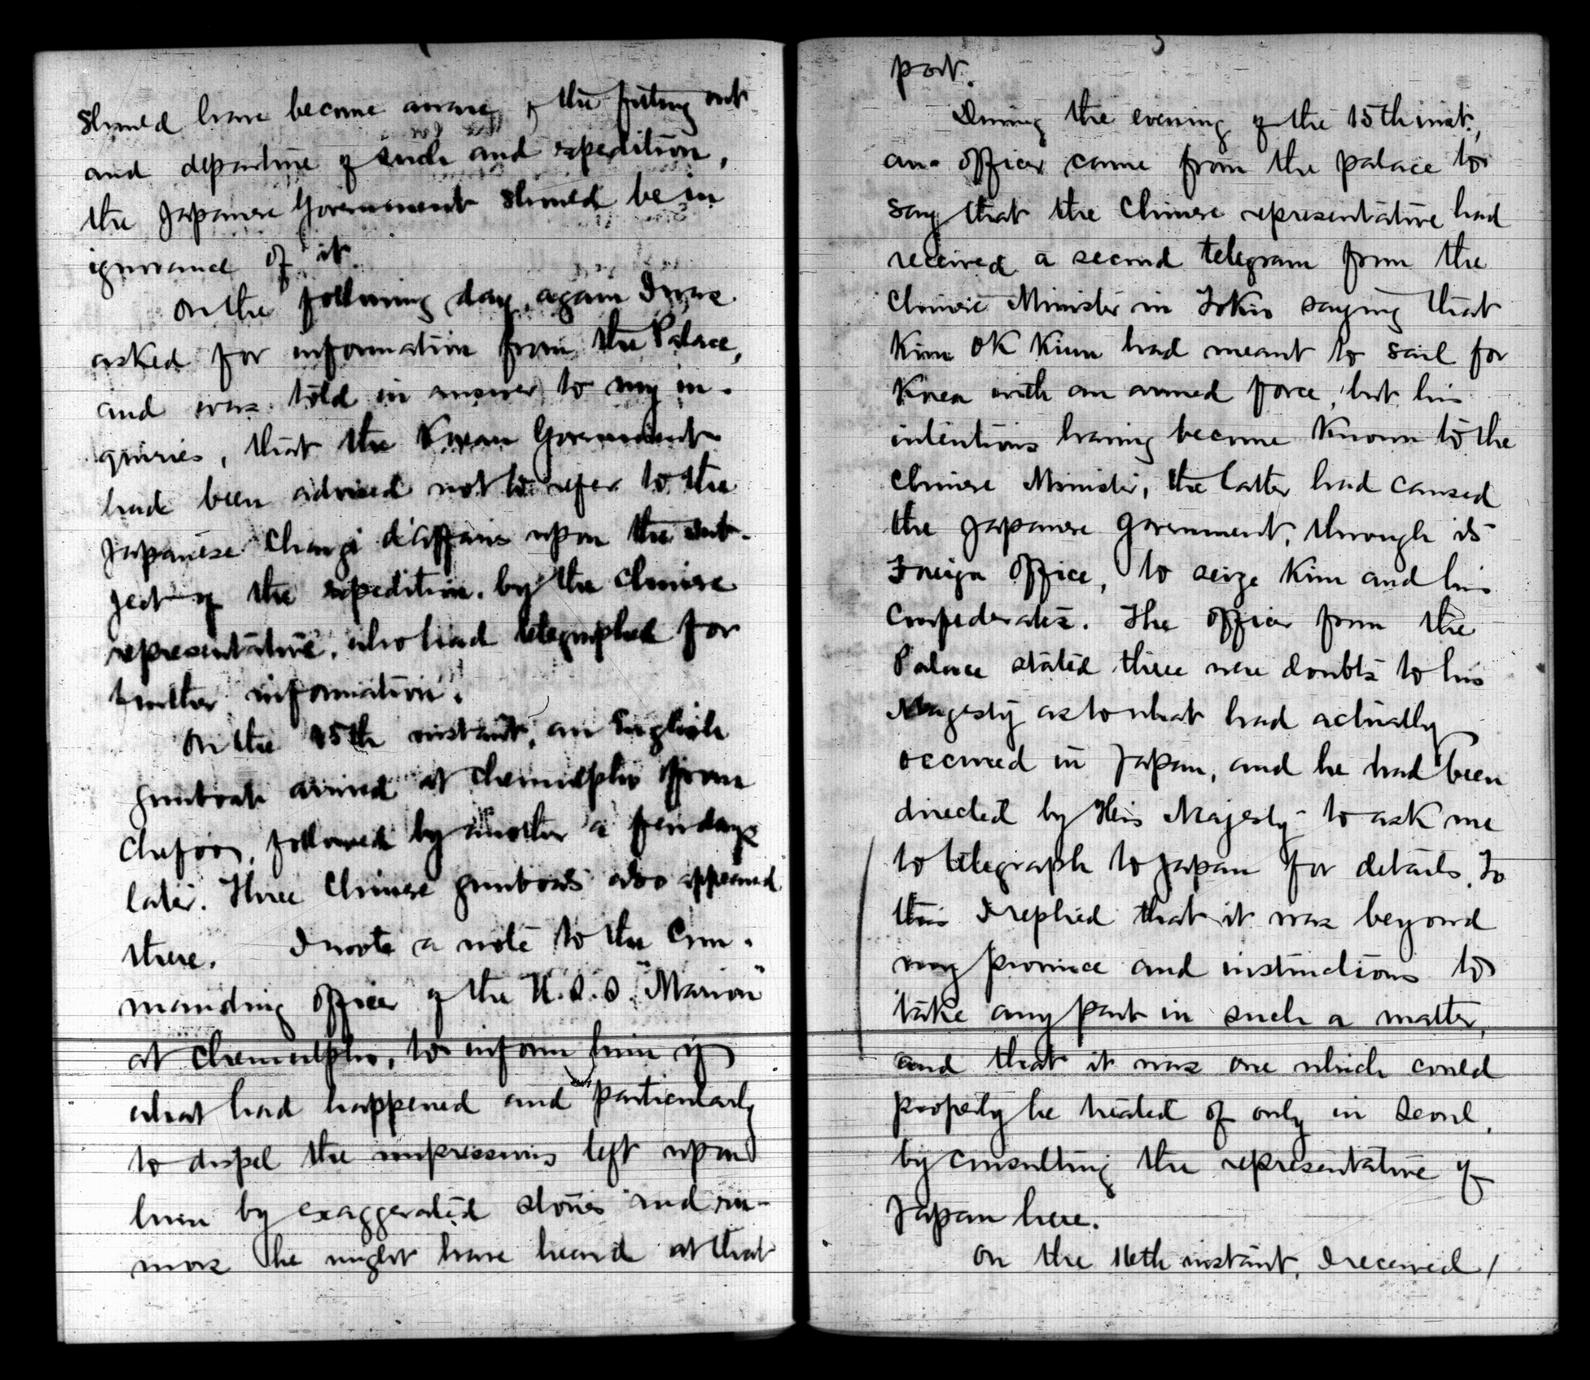 should have become aware of the fitting out
and departure of such and expedition,
the Japanese Government should be in
ignorance of it.
On the following day, again I was
asked for information from the Palace,
and was told in answer to my in-
quiries, that the Korean Government
had been advised not to refer to the
Japanese Chargé d'Affaires upon the sub-
ject of the expedition, by the Chinese
representative, who had telegraphed for
further information.
On the 15th instant, an English
gunboat arrived at Chemulpho from
Chefoo, followed by another a few days
later. Three Chinese gunboats also appeared
there. I wrote a note to the Com-
manding officer of the U.S.S. "Marion"
at Chemulpho, to inform him of
what had happened and particularly
to dispel the impressions left upon
him by exaggerated stories and ru-
mors he might have heard at that
port.
During the evening of the 15th inst.,
an officer came from the palace to
say that the Chinese representative had
received a second telegram from the
Chinese Minister in Tokio saying that
Kim Ok Kiun had meant to sail for
Korea with an armed force, but his
intentions having become known to the
Chinese Minister, the latter had caused
the Japanese Government, through its
Foreign Office, to seize Kim and his
Confederates. The officer from the
Palace stated there were doubts to his
Majesty as to what had actually
occurred in Japan, and he had been
directed by His Majesty to ask me
to telegraph to Japan for details. To
this I replied that it was beyond
my province and instructions to
take any part in such a matter,
and that it was one which could
properly be treated of only in Seoul,
by consulting the representative of
Japan here.
On the 16th instant, I received